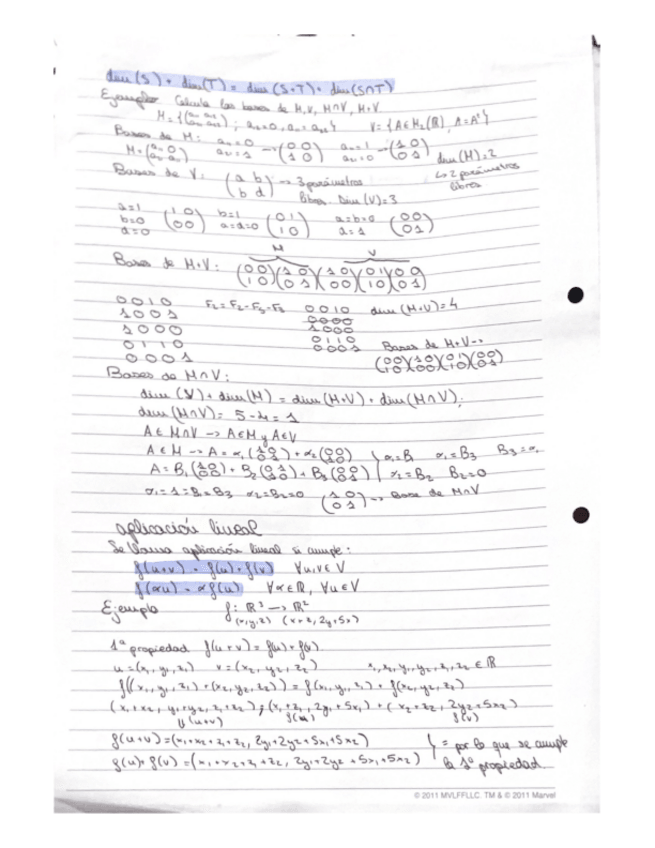 dim (S) + dim (T) = dim (S+T) + dim (S∩T)
Ejemplo Calcula las bases de M, V, M∩V, M+V
V = {A∈M₂(ℝ), A=Aᵗ}
Bases de M:
dim (M)=2
↳ 2 parámetros libres
Bases de V: (a b / b d) → 3 parámetros libres. Dim (V)=3
a=1 b=0 d=0 (1 0 / 0 0) b=1 a=d=0 (0 1 / 1 0) a=b=0 d=1 (0 0 / 0 1)
M V
Bases de M+V: (0 0 / 1 0)(1 0 / 0 1)(1 0 / 0 0)(0 1 / 1 0)(0 0 / 0 1)
0 0 1 0 0 0 1 0 dim (M+V)=4
1 0 0 1 0 0 0 0
1 0 0 0 1 0 0 0
0 1 1 0 0 1 1 0 Bases de M+V →
0 0 0 1 0 0 0 1 (0 0 / 1 0)(1 0 / 0 0)(0 1 / 1 0)(0 0 / 0 1)
Bases de M∩V:
dim (V) + dim (M) = dim (M+V) + dim (M∩V);
dim (M∩V) = 5-4 = 1
A∈ M∩V → A∈M y A∈V
A∈M → A = α₁(1 0 / 0 1) + α₂(0 0 / 1 0)
A = B₁(1 0 / 0 0) + B₂(0 1 / 1 0) + B₃(0 0 / 0 1) α₂=B₂ B₂=0
α₁=1=B₁=B₃ α₂=B₂=0 (1 0 / 0 1) → Base de M∩V
aplicación lineal
Se llama aplicación lineal si cumple:
f(u+v) = f(u)+f(v) ∀u,v∈V
f(αu) = αf(u) ∀α∈ℝ, ∀u∈V
Ejemplo f: ℝ³ → ℝ²
(x,y,z) (x+z, 2y+5x)
1ª propiedad f(u+v) = f(u)+f(v)
u=(x₁,y₁,z₁) v=(x₂,y₂,z₂) x₁,x₂,y₁,y₂,z₁,z₂ ∈ℝ
f((x₁,y₁,z₁)+(x₂,y₂,z₂)) = f(x₁,y₁,z₁) + f(x₂,y₂,z₂)
(x₁+x₂, y₁+y₂, z₁+z₂) ; (x₁+z₁, 2y₁+5x₁) + (x₂+z₂, 2y₂+5x₂)
f(u+v) f(u) f(v)
f(u+v)=(x₁+x₂+z₁+z₂, 2y₁+2y₂+5x₁+5x₂)
f(u)+f(v)=(x₁+x₂+z₁+z₂, 2y₁+2y₂+5x₁+5x₂)
= por lo que se cumple
la 1ª propiedad.
© 2011 MVLFFLLC. TM & © 2011 Marvel